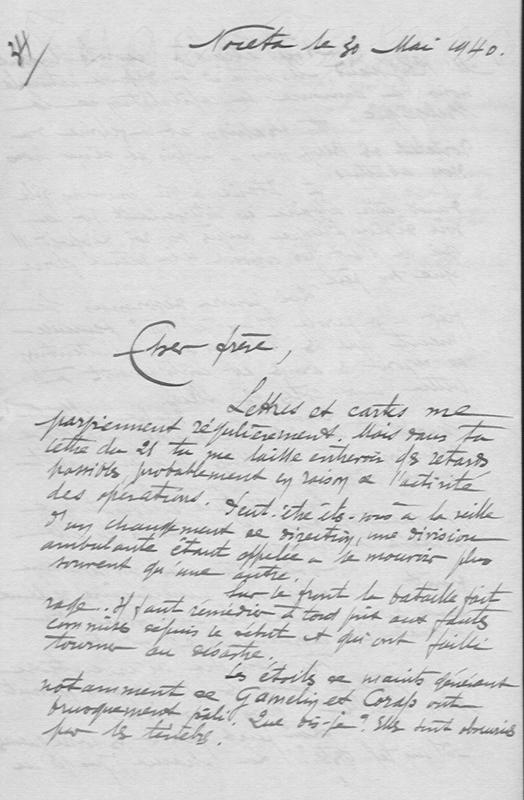 Noceta le 30 Mai 1940.
Cher frère,
Lettres et cartes me
parviennent régulièrement. Mais dans ta
lettre du 21 tu me laisse entrevoir des retards
possibles, probablement en raison de l'activité
des opérations. Peut-être êtes-vous à la veille
d'un changement de direction, une division
ambulante étant appelée à se mouvoir plus
souvent qu'une autre.
Sur le front la bataille fait
rage. Il faut remédier à tout prix aux fautes
commises depuis le début et qui ont failli
tourner au désastre.
Les étoiles de maints généraux
notamment de Gamelin et Corap ont
brusquement pâli. Que dis-je ? Elles sont obscurcies
par les ténèbres.